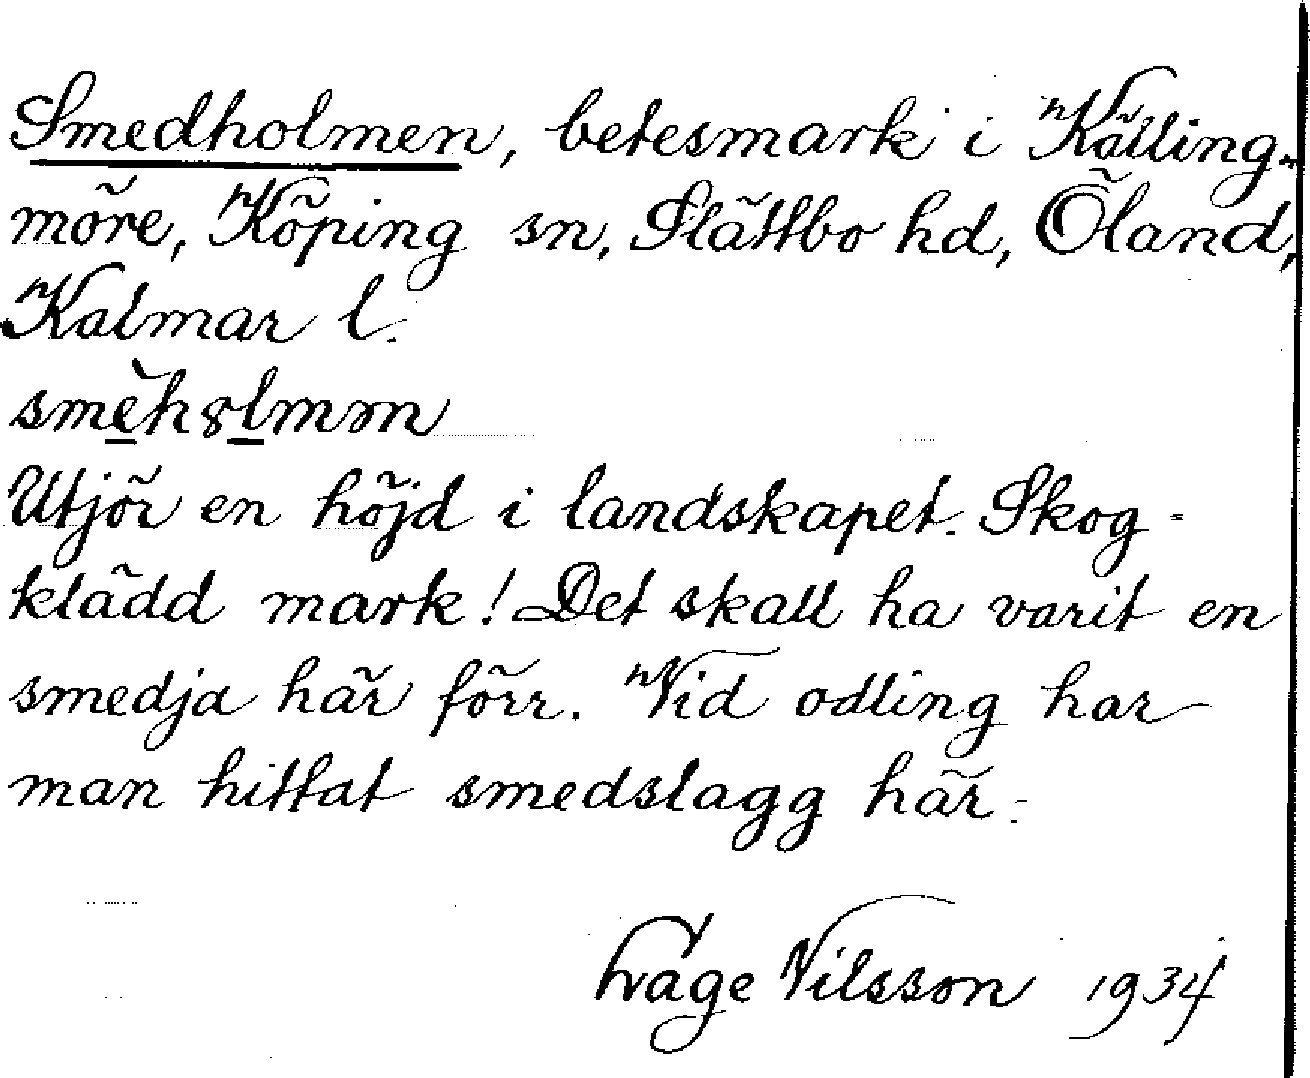 Smedholmen, betesmark i Källing-
möre, Köping sn, Slättbo hd, Öland,
Kalmar l.
Utjör en höjd i landskapet. Skog-
klädd mark! Det skall ha varit en
smedja här förr. Vid odling har
man hittat smedslagg här.
Åge Nilsson 1934